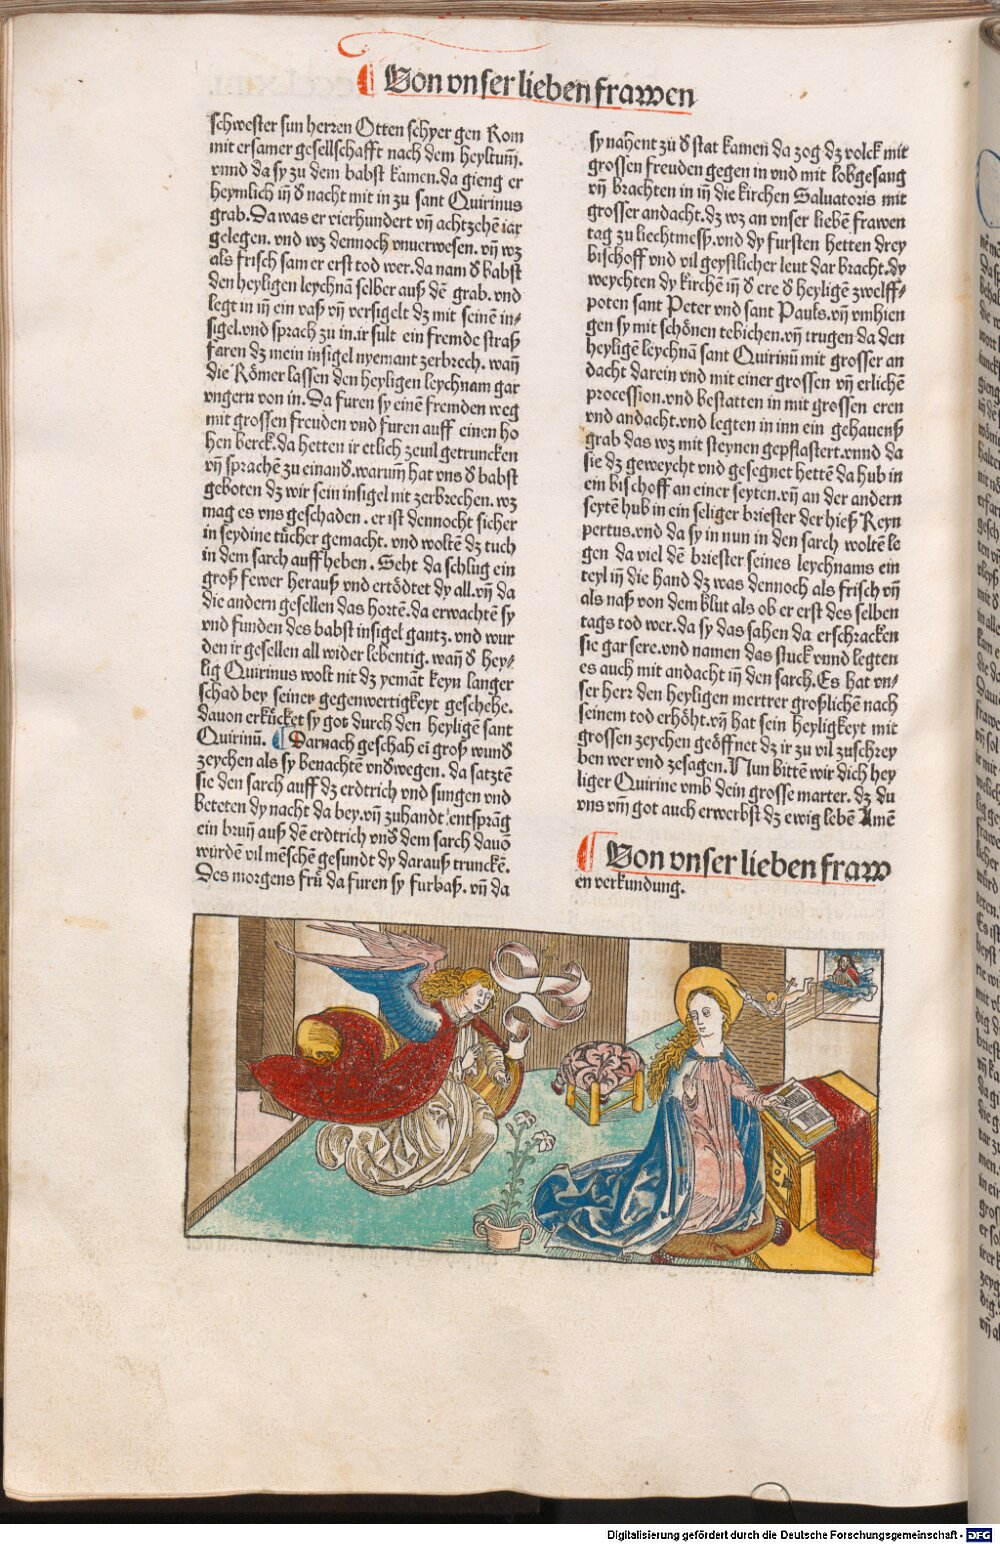 Von vnser lieben frawen
schwester sun herren Otten schyer gen Rom
mit ersamer gesellschafft nach dem heyltum̄.
vnnd da sy zu dem babst kamen. da gieng er
heymlich in̄ d nacht mit in zu sant Quirinus
grab. Da was er vierhundert vn̄ achtzehē iar
gelegen. vnd wz dennoch vnuerwesen. vn̄ wz
als frisch sam er erst tod wer. da nam d babst
den heyligen leychnā selber auß dē grab. vnd
legt in in̄ ein vaß vn̄ versigelt dz mit seinē in⸗
sigel. vnd sprach zu in. ir sult ein fremde straß
faren dz mein insigel nyemant zerbrech. wan̄
die Römer lassen den heyligen leychnam gar
vngern von in. Da furen sy einē fremden weg
mit grossen freuden vnd furen auff einen ho
hen berck. da hetten ir etlich zeuil getruncken
vn̄ sprachē zu einand. warum̄ hat vns d babst
geboten dz wir sein insigel nit zerbrechen. wz
mag es vns geschaden. er ist dennocht sicher
in seydine tücher gemacht. vnd woltē dz tuch
in dem sarch auff heben. Seht da schlug ein
groß fewer herauß vnd ertödtet dy all. vn̄ da
die andern gesellen das hortē. da erwachtē sy
vnd funden des babst insigel gantz. vnd wur
den ir gesellen all wider lebentig. wan̄ d hey⸗
lig Quirinus wolt nit dz yemāt keyn langer
schad bey seiner gegenwertigkeyt geschehe.
dauon erkücket sy got durch den heyligē sant
Quirinū. Darnach geschah ei groß wund
zeychen als sy benachtē vndwegen. da satztē
sie den sarch auff dz erdtrich vnd sungen vnd
beteten dy nacht da bey. vn̄ zuhandt entsprāg
ein brun̄ auß dē erdtrich vnd dem sarch dauō
würdē vil mēschē gesundt dy darauß trunckē.
Des morgens frü da furen sy furbaß. vn̄ da
sy nahent zu d stat kamen da zog dz volck mit
grossen freuden gegen in vnd mit lobgesang
vn̄ brachten in in̄ die kirchen Saluatoris mit
grosser andacht. dz wz an vnser liebē frawen
tag zu liechtmesß. vnd dy fursten hetten drey
bischoff vnd vil geystlicher leut dar bracht. dy
weychten dy kirchē in̄ d ere d heyligē zwelff⸗
poten sant Peter vnd sant Pauls. vn̄ vmhien
gen sy mit schönen tebichen. vn̄ trugen da den
heyligē leychnā sant Quirinū mit grosser an
dacht darein vnd mit einer grossen vn̄ erlichē
procession. vnd bestatten in mit grossen eren
vnd andacht. vnd legten in inn ein gehauenß
grab das wz mit steynen gepflastert. vnnd da
sie dz geweycht vnd gesegnet hettē da hub in
ein bischoff an einer seyten. vn̄ an der andern
seytē hub in ein seliger briester der hieß Reyn
pertus. vnd da sy in nun in den sarch woltē le
gen da viel dē briester seines leychnams ein
teyl in̄ die hand dz was dennoch als frisch vn̄
als naß von dem blut als ob er erst des selben
tags tod wer. da sy das sahen da erschracken
sie gar sere. vnd namen das stuck vnnd legten
es auch mit andacht in̄ den sarch. Es hat vn⸗
ser herz den heyligen mertrer großlichē nach
seinem tod erhöht. vn̄ hat sein heyligkeyt mit
grossen zeychen geöffnet dz ir zu vil zuschrey
ben wer vnd zesagen. Nun bittē wir dich hey
liger Quirine vmb dein grosse marter. dz du
vns vm̄ got auch erwerbst dz ewig lebē Amē
Von vnser lieben fraw
en verkundung.
Digitalisierung gefördert durch die Deutsche Forschungsgemeinschaft - DFG